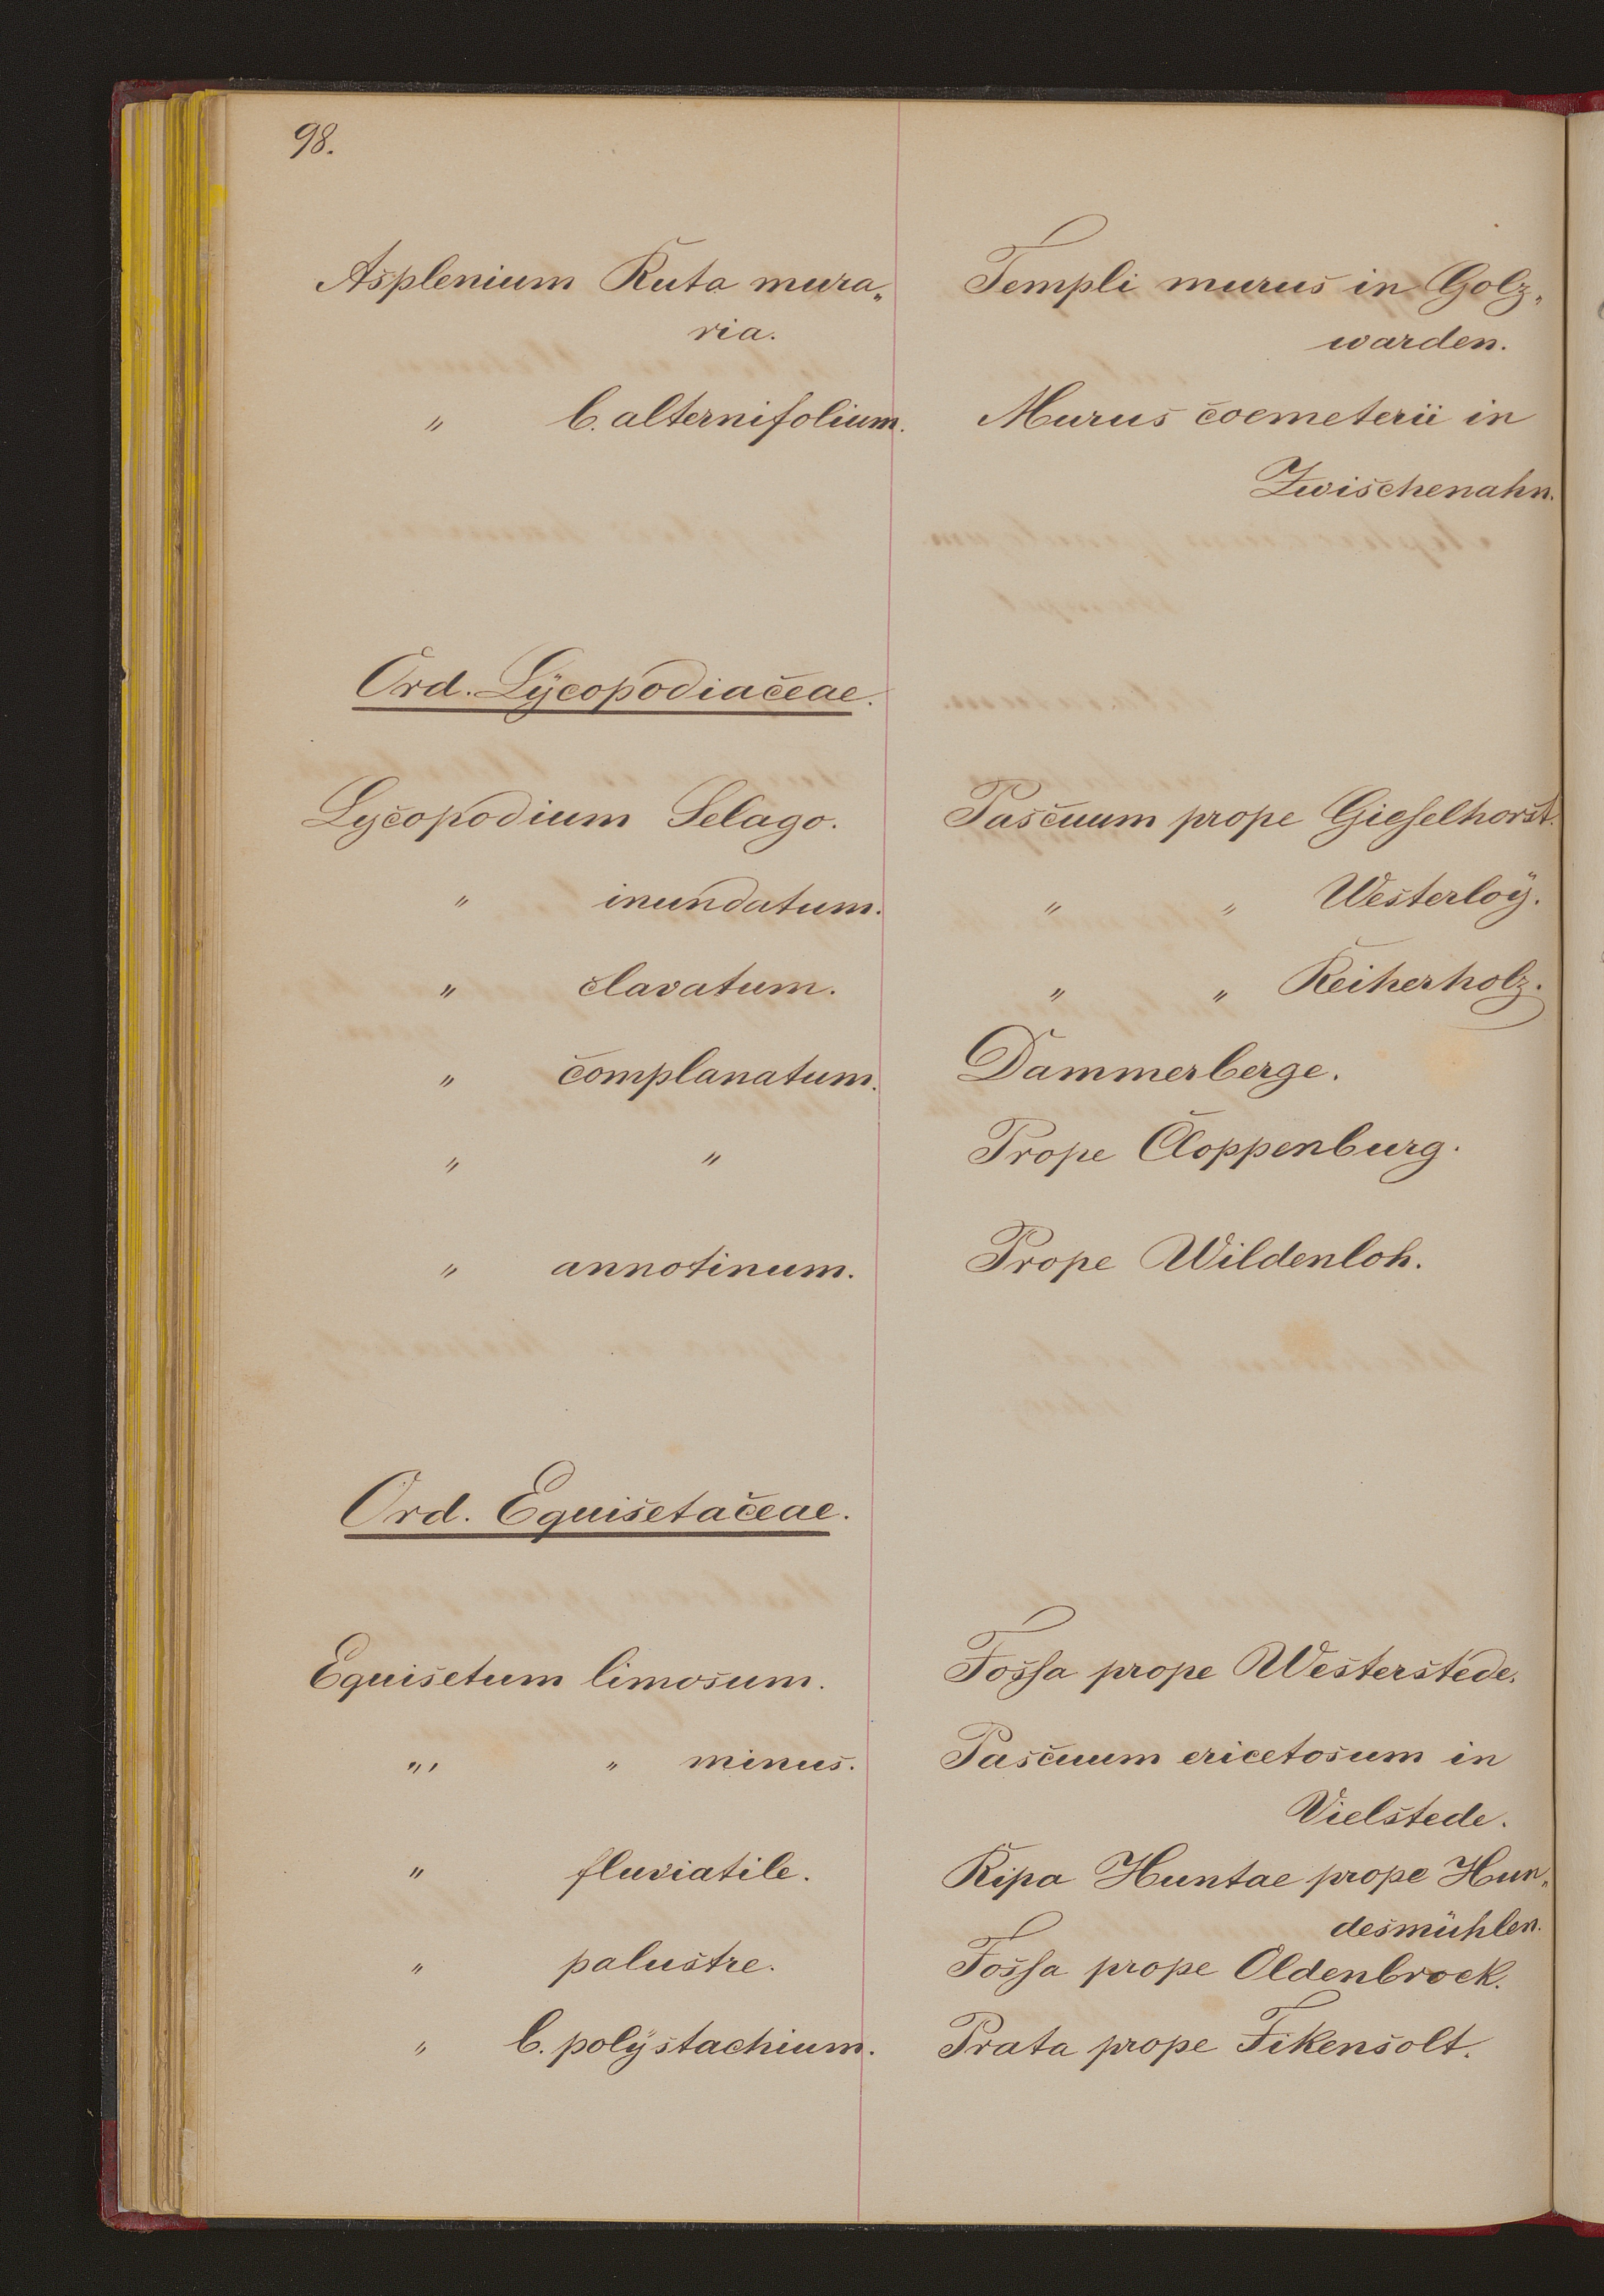 98.
Asplenium Ruta mura„ Templi murus in Golz„
ria. warden.
„ b. alternifolium. Murus coemeterii in
Zwischenahn.
Ord. Lÿcopodiaceae.
Lycopodium Selago. Pascuum prope Gieſelhorst.
„ inundatum. „ „ Westerloÿ.
„ clavatum. „ „ Reiherholz.
„ complanatum. Dammerberge.
„ „ Prope Cloppenburg.
„ annotinum. Prope Wildenloh.
Ord. Equisetaceae.
Equisetum limosum. Fosſa prope Westerstede.
„ „ minus. Pascuum ericetosum in
Vielstede.
„ fluviatile. Ripa Huntae prope Hun„
desmühlen.
„ palustre. Fosſa prope Oldenbrock.
„ b. polÿstachium. Prata prope Fikensolt.